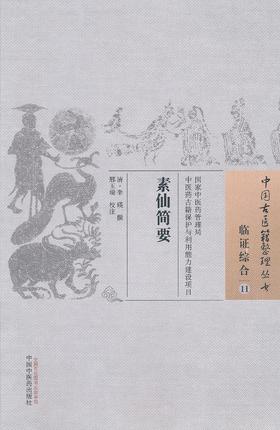 中国古医籍整理丛书
临证综合 11
国家中医药管理局
中医药古籍保护与利用能力建设项目
素仙简要
清·奎瑛 撰
邢玉瑞 校注
中国中医药出版社